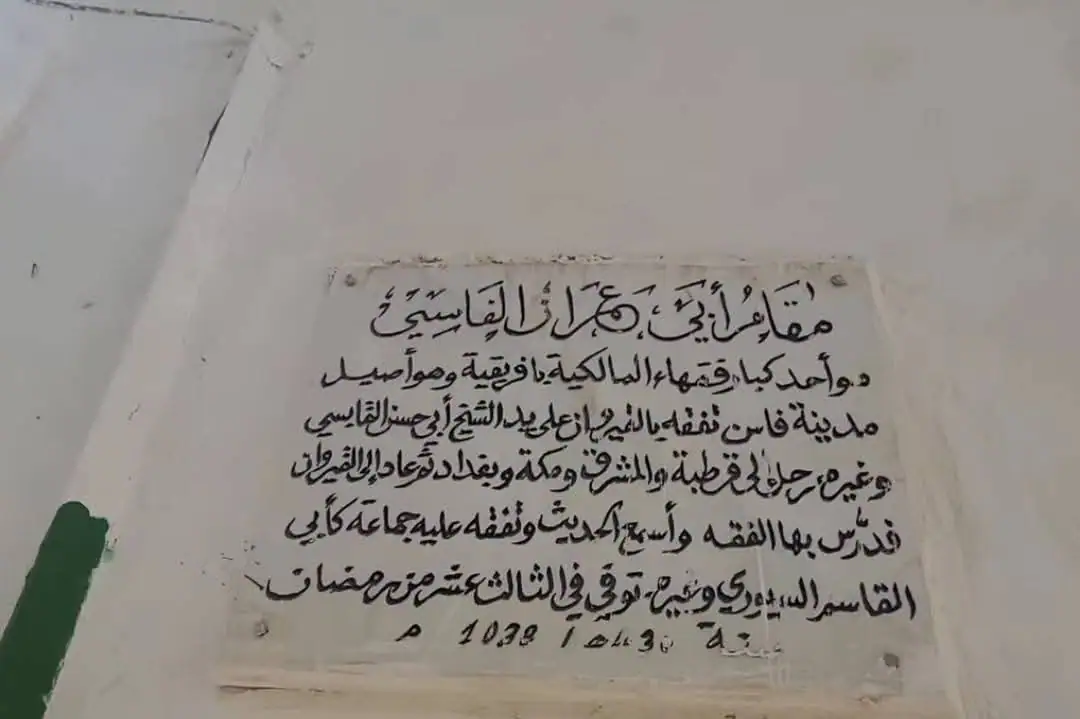 مقام أبي عمران الفاسي
هو أحد كبار فقهاء المالكية بافريقية وهو أصيل
مدينة فاس تفقه بالقيروان على يد الشيخ أبي حسن القابسي
وغيره رحل إلى قرطبة والمشرق ومكة وبغداد ثم عاد إلى القيروان
فدرّس بها الفقه وأسمع الحديث وتفقه عليه جماعة كأبي
القاسم السيوري وغيره. توفي في الثالث عشر من رمضان
سنة 430هـ / 1038 م